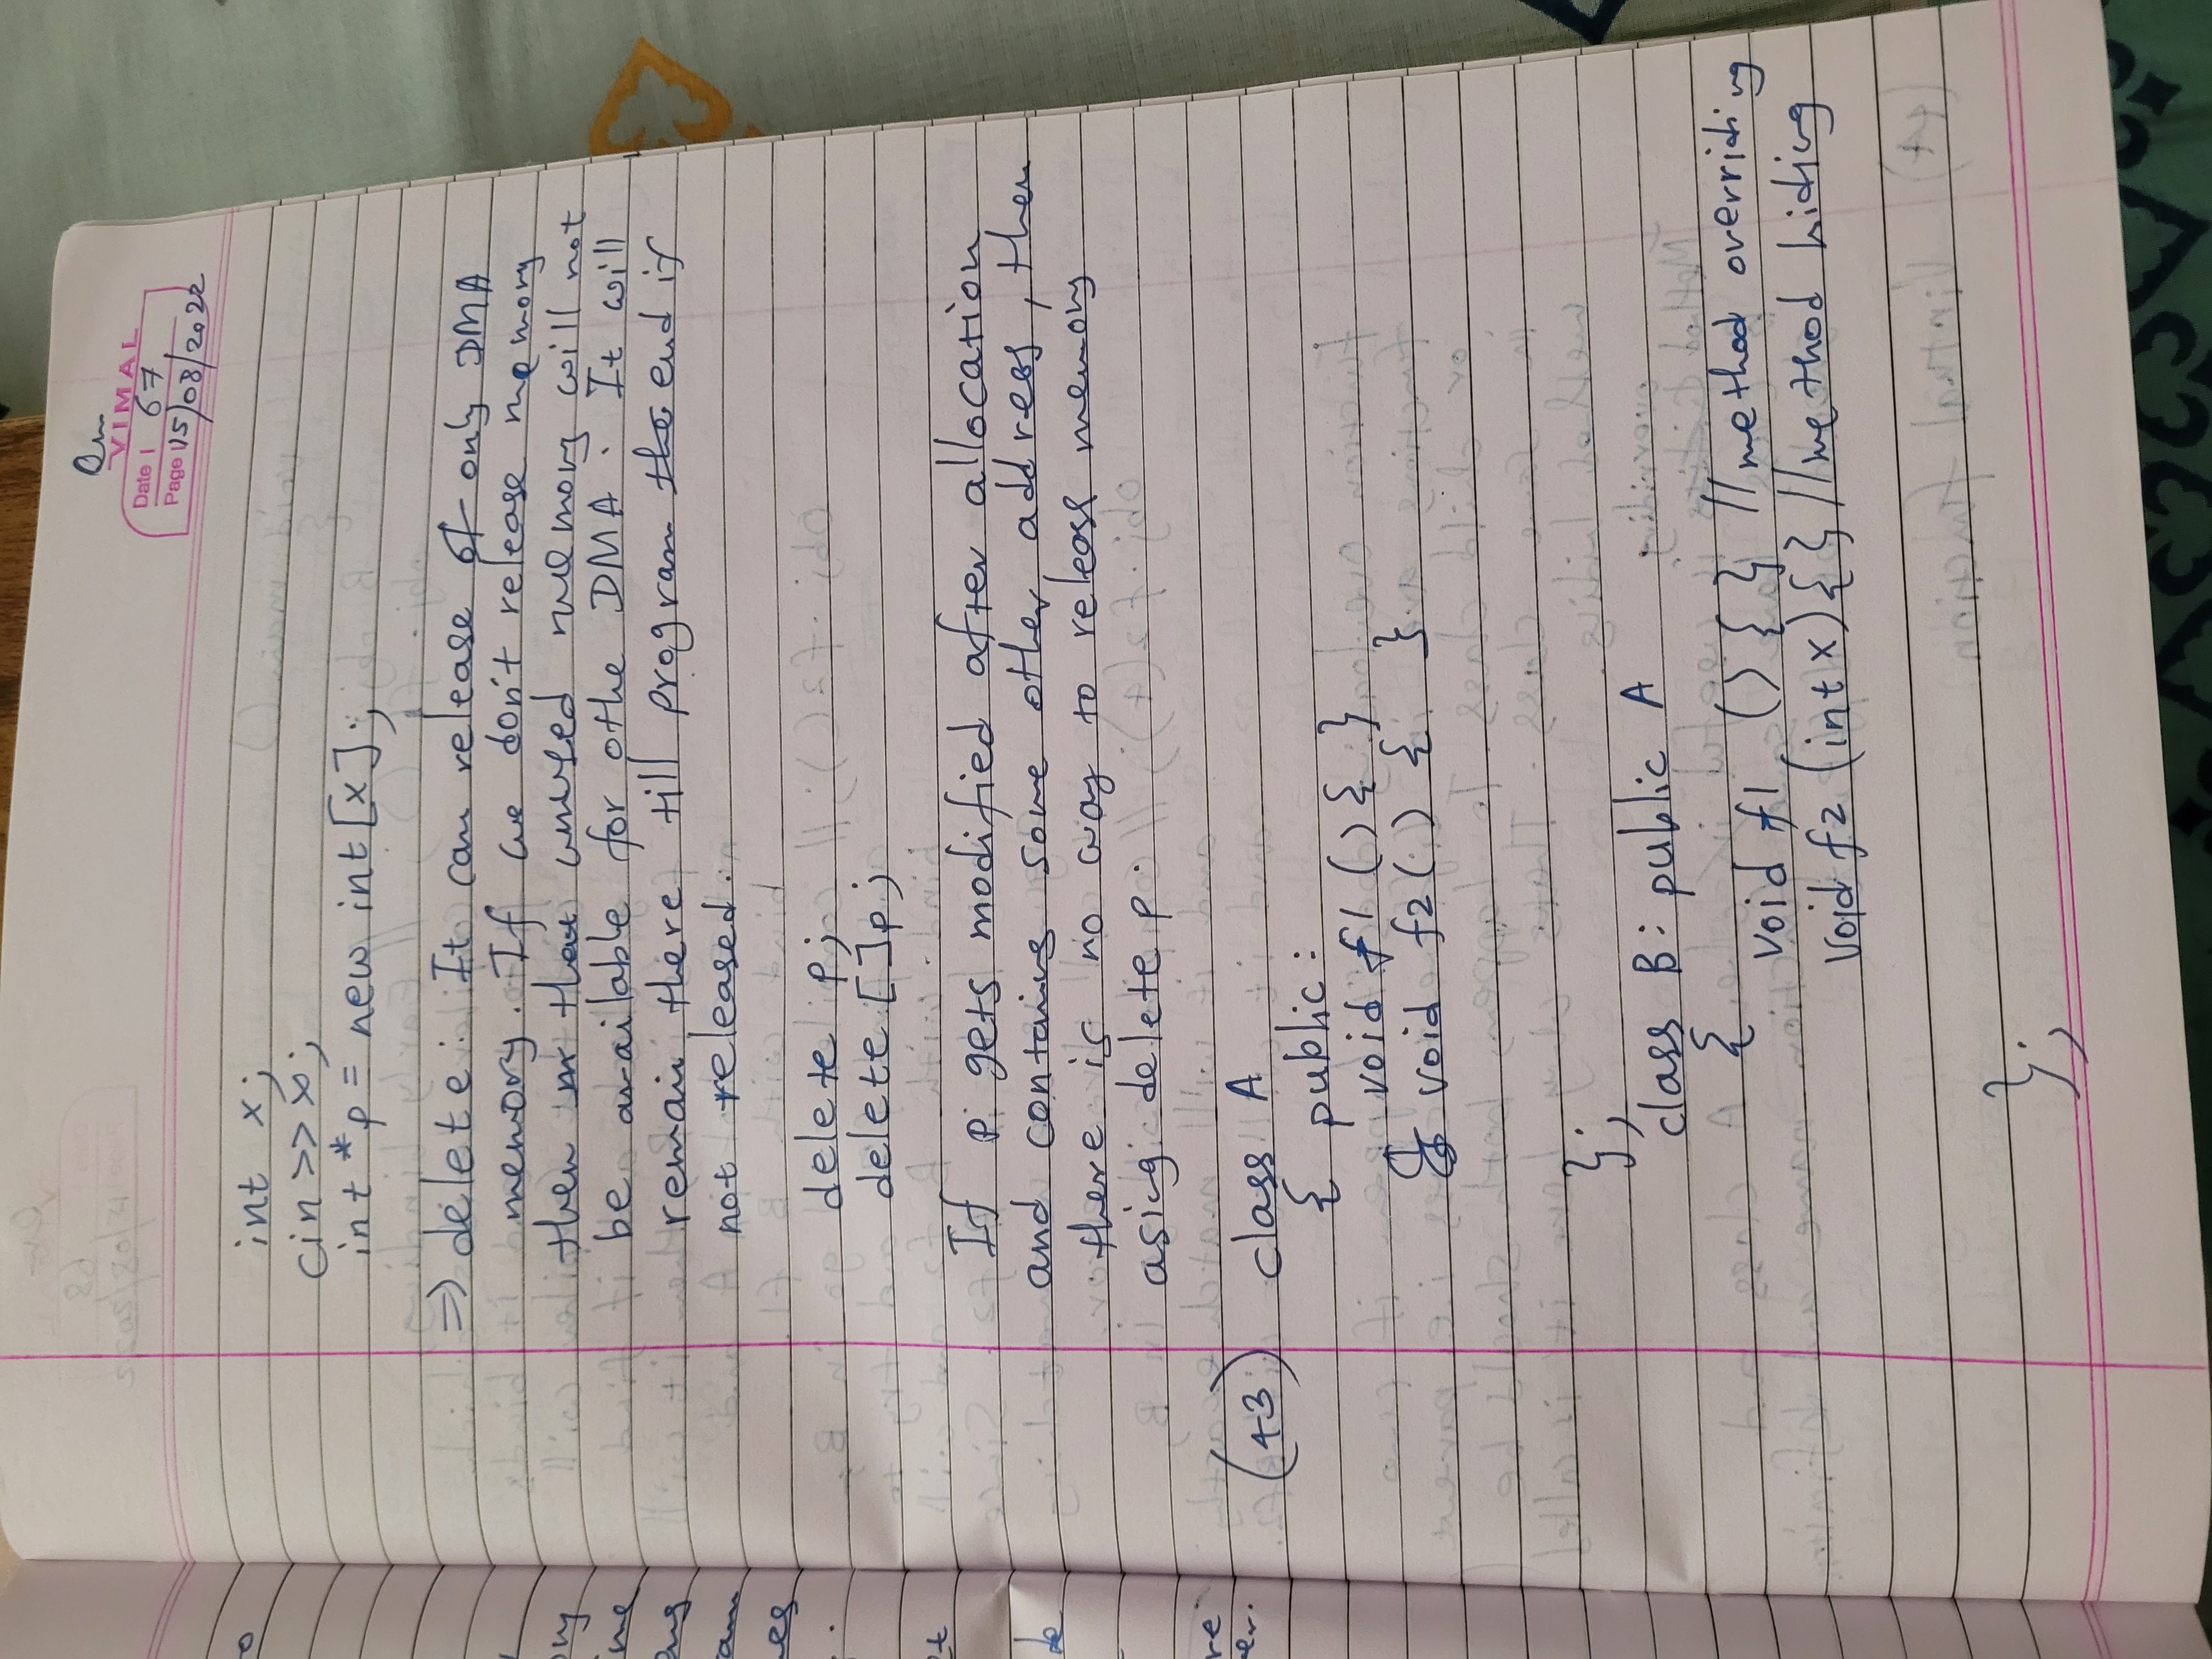 Om
VIMAL
Date | 67
Page | 15/08/2022
int x;
cin >> x;
int *p = new int[x];
⇒ delete : It can release of only DMA
memory. If we don't release memory
then that unused memory will not
be available for othe DMA. It will
remain there till program end if
not released.
delete p;
delete []p;
If p gets modified after allocation
and contains some other address, then
there is no way to release memory
using delete p.
(43) class A
{ public:
void f1 () { }
void f2 ( ) { }
};
class B : public A
{
void f1 () { } //method overriding
void f2 (int x) { } //method hiding
};